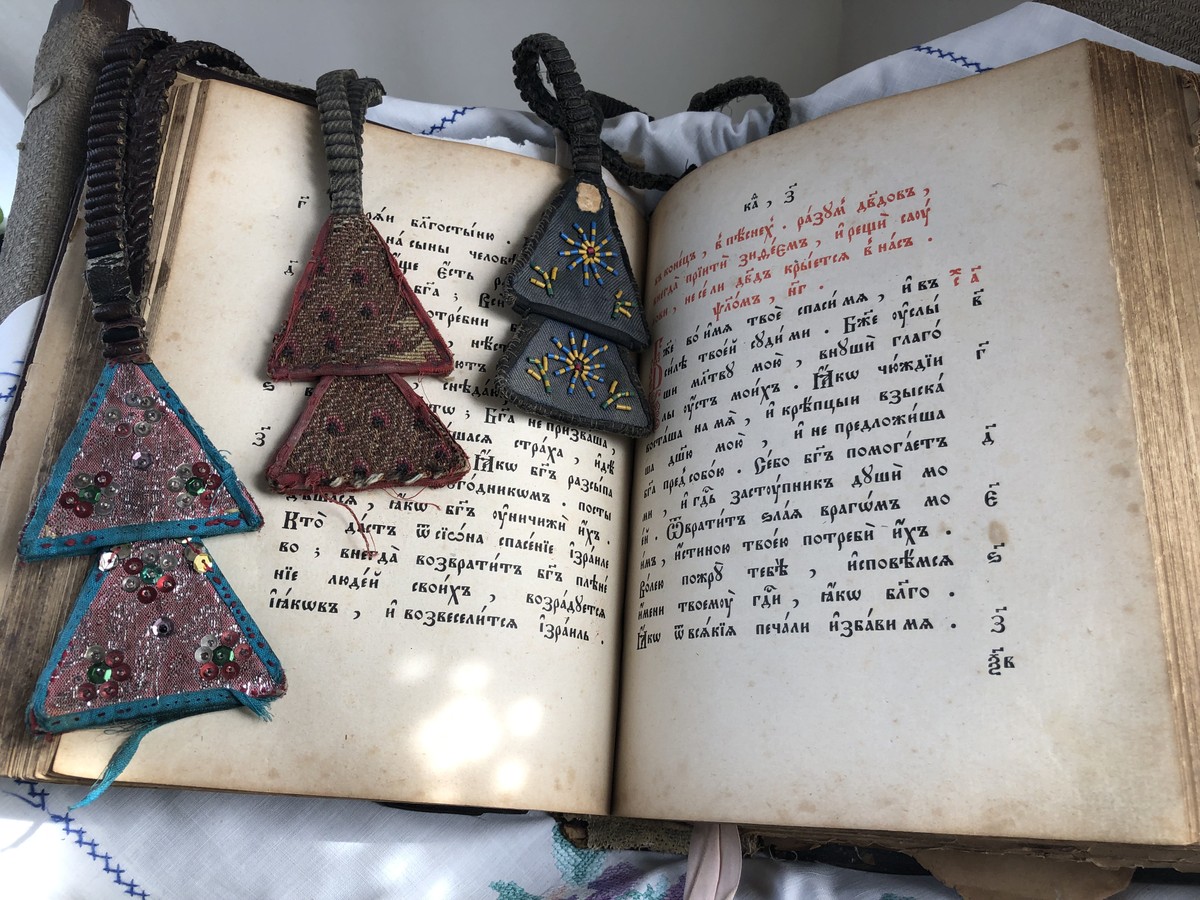 г҃
блгостыню .
на сыны человѣ
д҃
аще є҆сть
бг҃а ;
потребни
нѣсть
ѕ҃
снѣдаю
бг҃а не призваша ,
з҃
страха , и҆дѣ
ꙗ҆́кѡ бг҃ъ разсы́па
человѣкоугодникѡмъ . посты
дѣшася , ꙗ҆́кѡ бг҃ъ оу҆ничижи́ и҆́хъ .
Кто̀ да́стъ ѿ сїѡ́на спасе́нїе і҆зра́иле
во ; внегда̀ возврати́тъ бг҃ъ плѣне́
нїе люде́й свои́хъ , возра́дуется
і҆а́кѡвъ , и҆ возвесели́тся і҆зра́иль .
ка , з҃
въ коне́цъ , в пѣ́снехъ . ра́зꙋмъ дв҃довъ ,
внегда̀ прїити́ зиде́ємъ , и҆ рещѝ саоу́
лови , не се́ ли дв҃дъ кры́ется в на́съ .
ѱало́мъ , н҃г .
Бж҃е во и҆́мя твоѐ спаси́ мя , и҆ въ
си́лѣ твое́й сꙋди́ ми . Бж҃е оу҆слы́
а҃
в҃
ши мл҃твꙋ мою̀ , внꙋшѝ глаго́
лы оу҆́стъ мои́хъ . Ꙗ҆́кѡ чꙋ́ждїи
г҃
воста́ша на мя̀ , и҆ крѣ́пцыи взыска́
ша дш҃ю мою̀ , и҆ не предложи́ша
бг҃а пред собо́ю . Се́ бо бг҃ъ помога́етъ
д҃
ми , и҆ гд҇ь застꙋ́пникъ дꙋшѝ мо
е́й . Ѿврати́тъ ѕла́я врагѡ́мъ мо
є҃
и҆́мъ , и҆́стиною твое́ю потребѝ и҆́хъ .
Во́лею пожрꙋ̀ тебѣ̀ , и҆сповѣ́мся
ѕ҃
и҆́мени твоемꙋ̀ гд҇и , ꙗ҆́кѡ бл҃го .
Ꙗ҆́кѡ ѿ вся́кїя печа́ли и҆зба́ви мя .
з҃